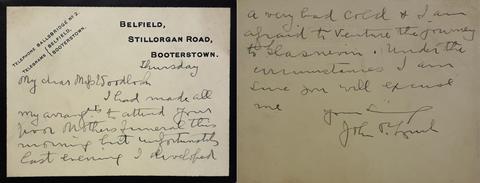 TELEPHONE BALLSBRIDGE No 2.
TELEGRAMS { BELFIELD,
BOOTERSTOWN.
BELFIELD,
STILLORGAN ROAD,
BOOTERSTOWN.
Thursday
My dear Mrs Woodlock
I had made all
my arrangts to attend your
poor Mothers funeral this
morning but unfortunately
last evening I developed
a very bad cold & I am
afraid to venture the journey
to Glasnevin. Under the
circumstances I am
sure you will excuse
me
John P. Lynch